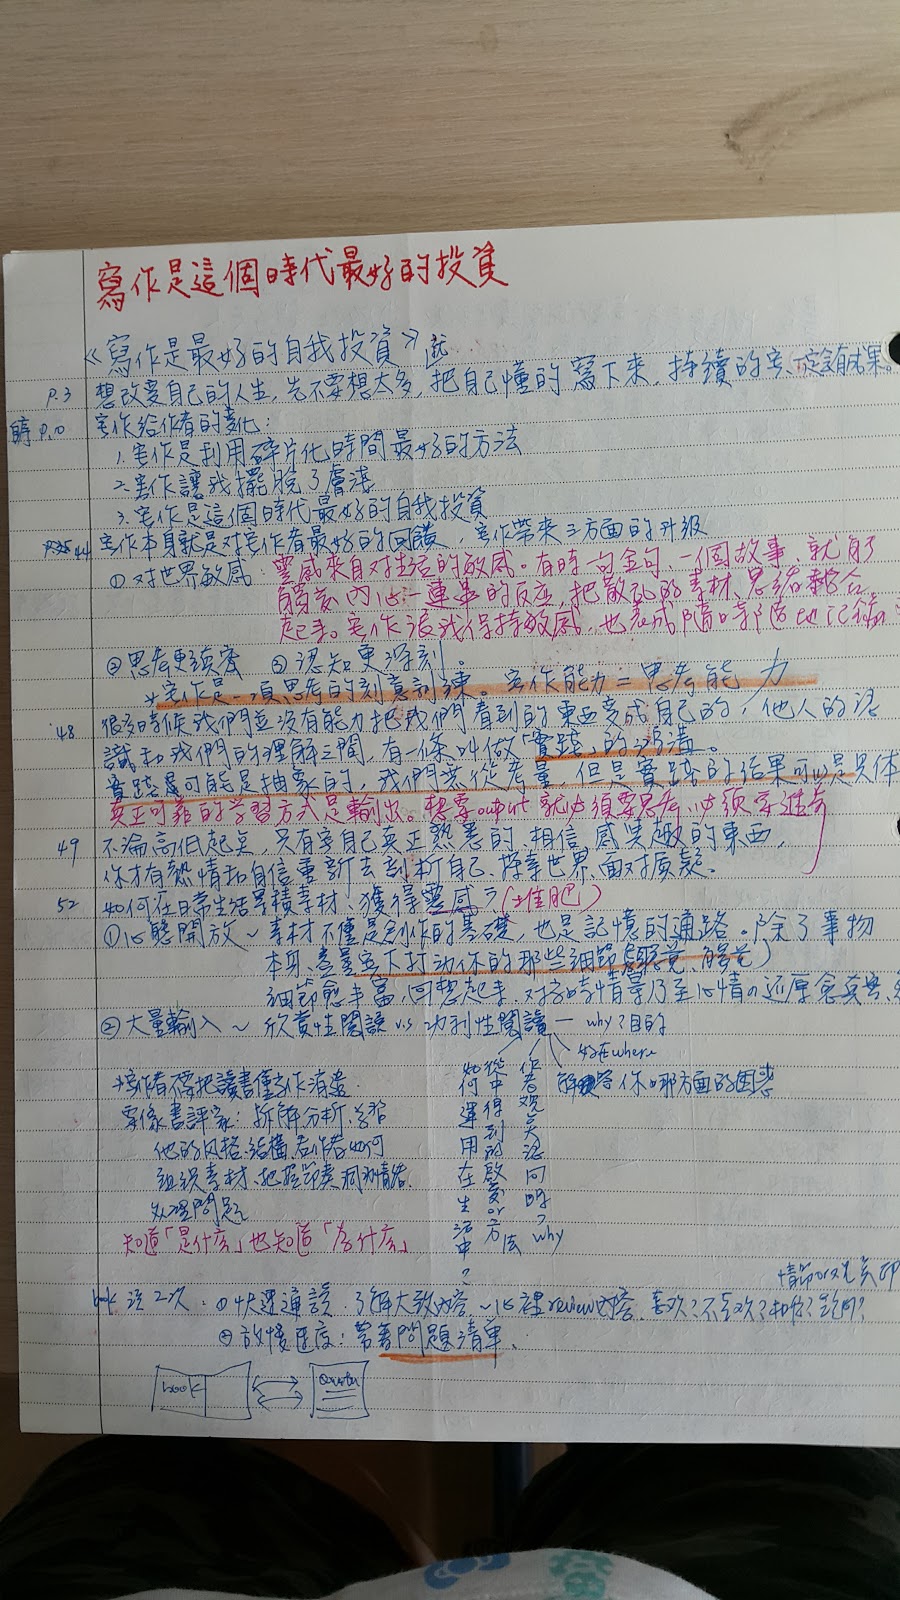 寫作是這個時代最好的投資
《寫作是最好的自我投資》
P.3 想改變自己的人生,先不要想太多,把自己懂的寫下來,持續的寫,一定該有成果。
P.10 寫作給作者的變化:
1. 寫作是利用碎片化時間最好的方法
2. 寫作讓我擺脫了膚淺
3. 寫作是這個時代最好的自我投資
44 寫作本身就是對寫作者最好的回饋,寫作帶來三方面的升級
①对世界敏感:靈感來自对生活的敏感。有時一句金句、一個故事、就有了
內心一連串的反应,把散乱的素材、思緒整合
起來。寫作讓我保持敏感,也養成隨時隨地記錄
②思考更縝密 ③認知更深刻。
*寫作是一項思考的刻意訓練。寫作能力=思考能力
48 很多時候我們並没有能力把我們看到的東西变成自己的,他人的知
識和我們的理解之間,有一條叫做「實踐」的鴻溝。
實踐是可能是抽象的,我們無從考量,但是實踐的结果可以是具体
真正可靠的学習方式是輸出。想要output 就必須要思考,必須要進步
49 不論高低起点,只有寫自己真正熟悉的、相信、感興趣的東西,
你才有熱情和自信重新去剖析自己、探索世界、面对質疑。
52 如何在日常生活累積素材、獲得靈感?(堆肥)
①心態開放~素材不僅是創作的基礎,也是記憶的通路。除了事物
本身、盡量寫下打动你的那些細節
細節愈丰富,回想起來,对當時情景乃至心情的还原愈真实、
②大量輸入~欣賞性閱讀 v.s 功利性閱讀 — why?目的
好在where
解答你哪方面的困惑
作者观点認同嗎?why
從中得到的啟發or方法
如何運用在生活中?
*寫作者不要把讀書僅当作消遣
要像書評家:拆解分析、学習
他的风格、結構、看作者如何
組織素材、把握節奏、
处理問題
知道「是什麼」也知道「为什麼」
book 讀2次:①快速通讀:了解大致內容~心裡review內容,喜欢?不喜欢?
②放慢速度:帶著問題清單。
book